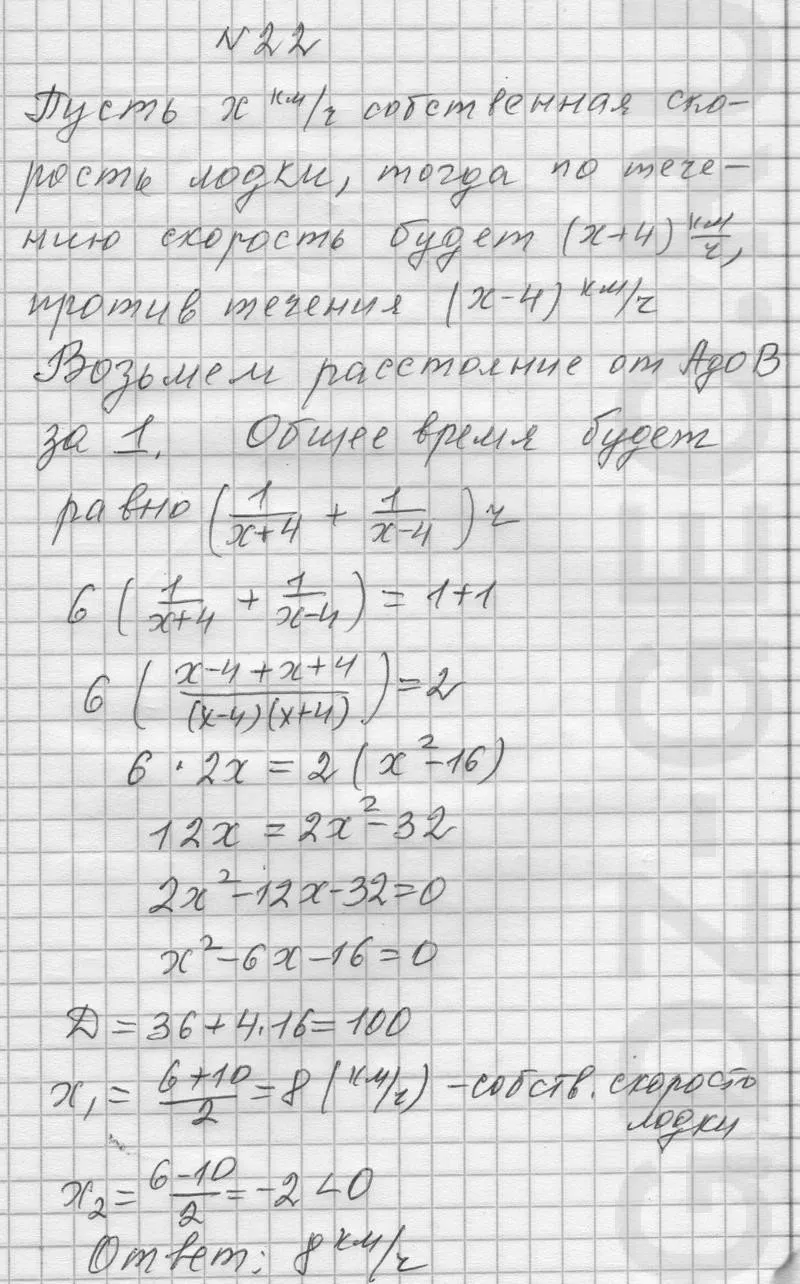 №22
Пусть x км/ч собственная ско-
рость лодки, тогда по тече-
нию скорость будет (x+4) км/ч,
против течения (x-4) км/ч
Возьмем расстояние от А до В
за 1. Общее время будет
равно (1/(x+4) + 1/(x-4)) ч
6 (1/(x+4) + 1/(x-4)) = 1+1
6 ((x-4+x+4)/((x-4)(x+4))) = 2
6 · 2x = 2 (x²-16)
12x = 2x²-32
2x²-12x-32=0
x²-6x-16=0
Д = 36+4·16=100
x₁ = (6+10)/2 = 8 (км/ч) - собств. скорость
лодки
x₂ = (6-10)/2 = -2 < 0
Ответ: 8 км/ч
GDZ.GEO